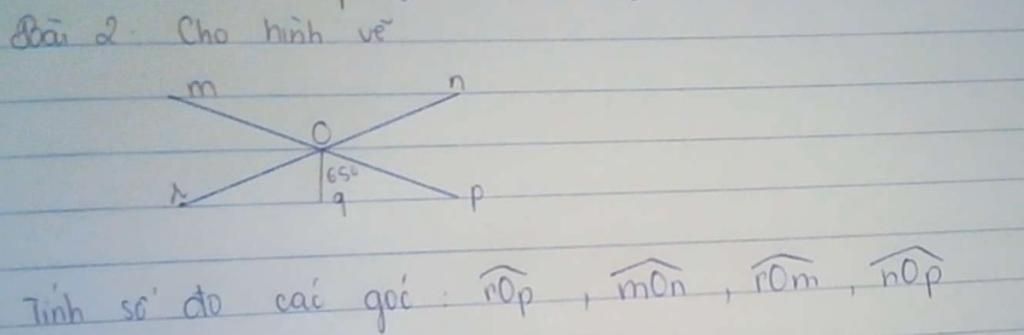 Bài 2. Cho hình vẽ
m n
O
65°
r q p
Tính số đo các góc: rOp, mOn, rOm, nOp